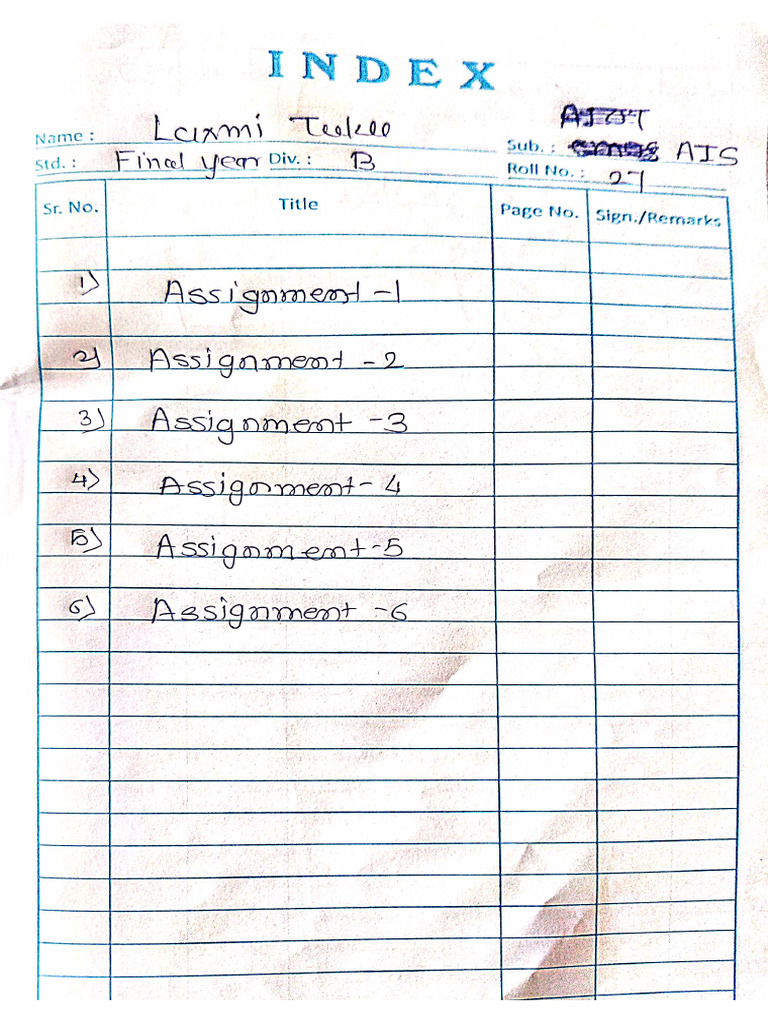 INDEX
Name : Laxmi
Sub. : AIS
Std. : Final year Div. : B
Roll No. : 27
Sr. No. Title Page No. Sign./Remarks
1) Assignment -1
2) Assignment - 2
3) Assignment -3
4) Assignment - 4
5) Assignment -5
6) Assignment -6